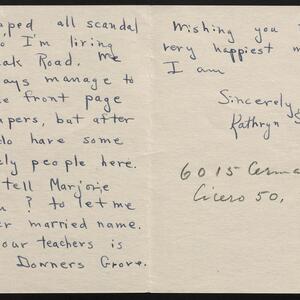 pped all scandal
I'm living
oak Road. We
ays manage to
e front page
apers, but after
do have some
ely people here.
tell Marjorie
? to let me
er married name.
our teachers is
Downers Grove.
Wishing you
very happiest
I am
Sincerely,
Kathryn
6015 Cerma
Cicero 50,